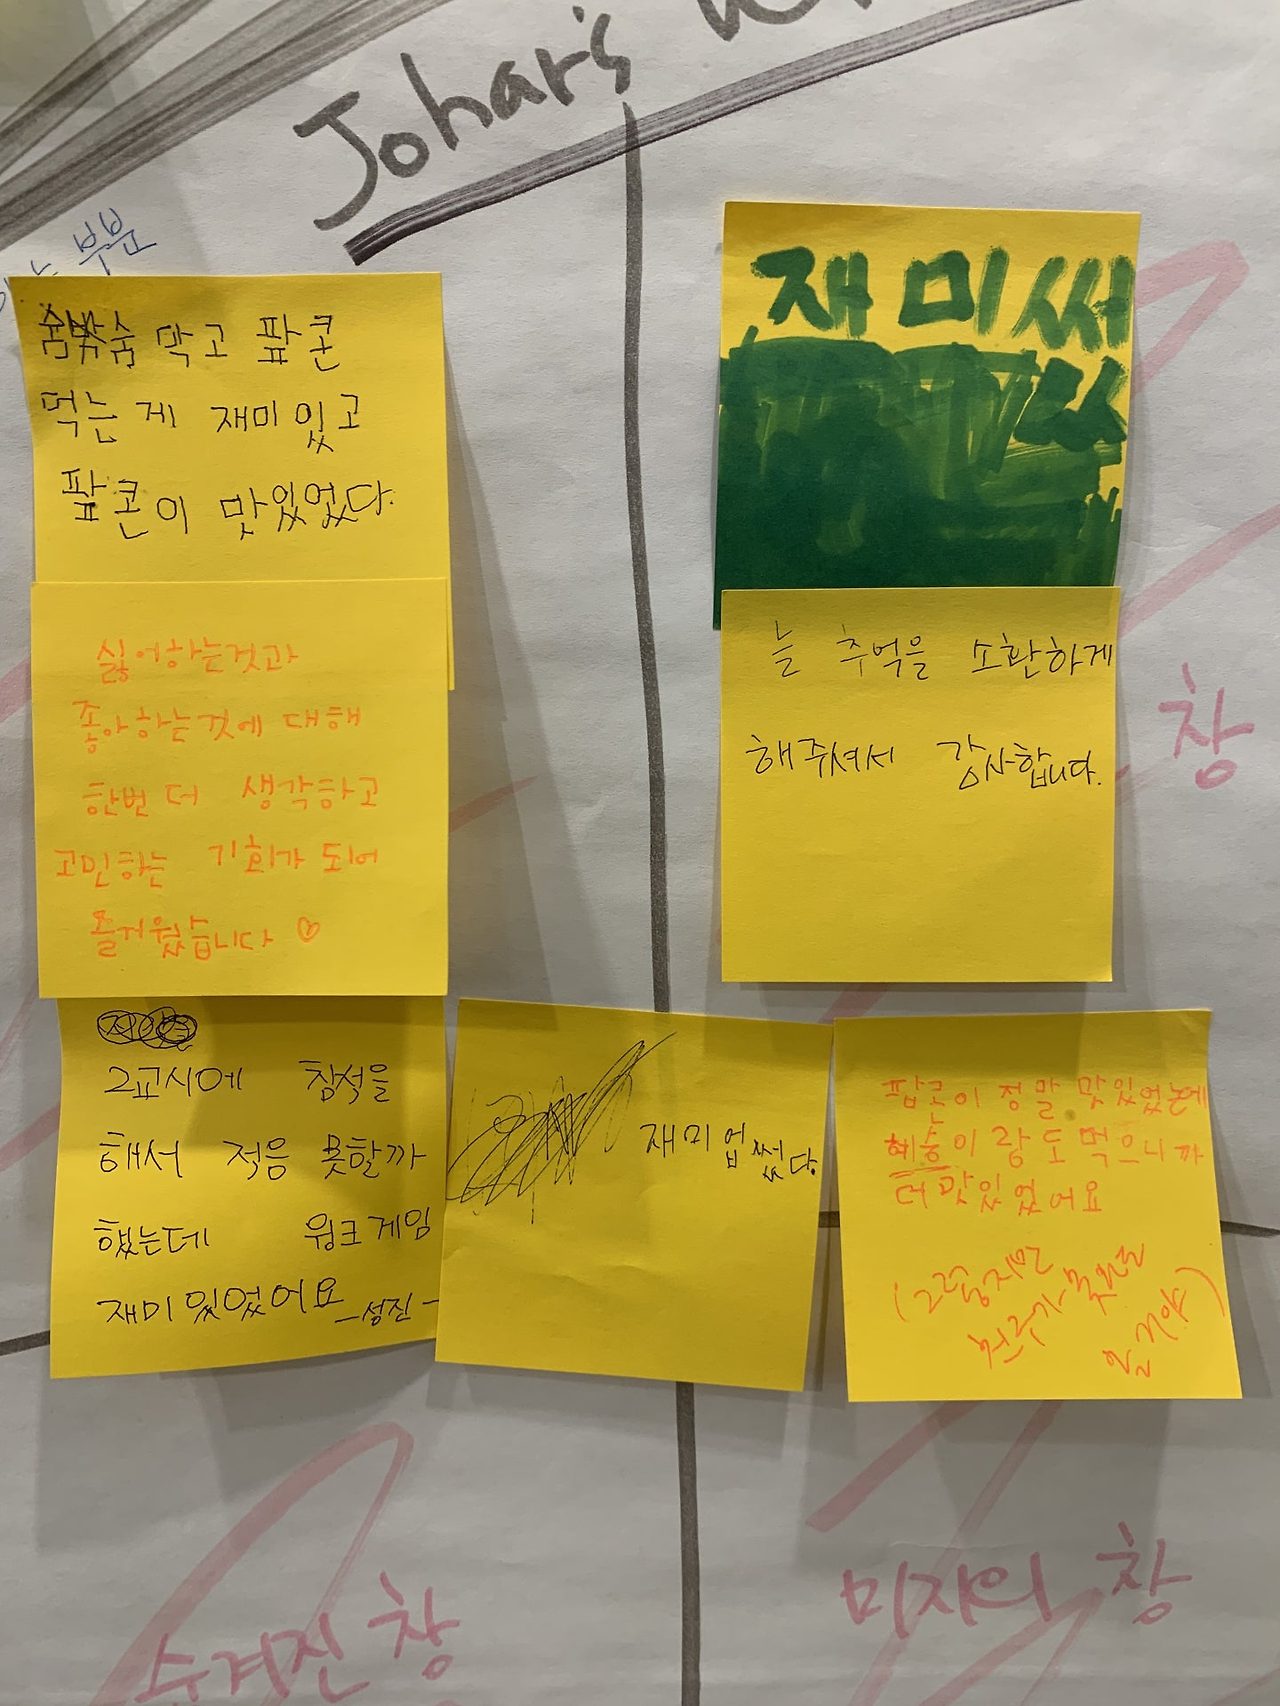 Johari's
부분
숨 막고 팦콘
먹는게 재미있고
팦콘이 맛있었다.
싫어하는것과
좋아하는것에 대해
한번 더 생각하고
고민하는 기회가 되어
즐거웠습니다 ♡
2교시에 참석을
해서 적응 못할까
했는데 워크게임
재미있었어요 -성진-
재미써
늘 추억을 소환하게
해주셔서 감사합니다.
창
재미업썼다
팝콘이 정말 맛있었는데
혜승이랑도 먹으니까
더 맛있었어요
수겨진 창
미지의 창